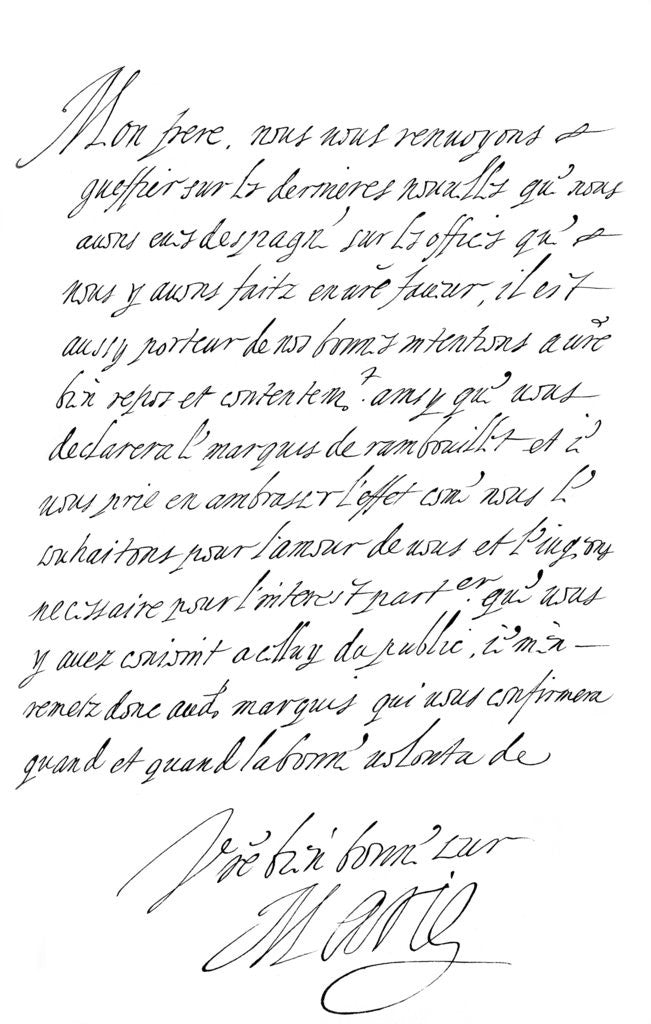 Mon frere, nous vous renuoyons
gueffier sur les dernieres nouuelles que nous
auons eues despagne sur les offices que
nous y auons faitz en vre faueur, il est
aussy porteur de nos bonnes intentions a vre
bien repos et contentemt. ainsy que vous
declarera le marquis de rambouillet et ie
vous prie en ambrasser l'effet come nous le
souhaitons pour l'amour de vous et le iugeons
necessaire pour l'interest parter. que vous
y auez conioint a celluy du public, ie m'en
remetz donc aud. marquis qui vous confirmera
quand et quand la bonne volonta de
Vre bien bonne seur
Marie